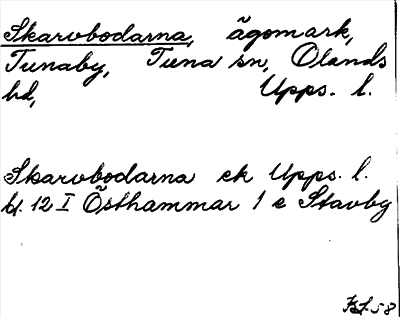 Skarvbodarna, ägomark,
Tunaby, Tuna sn, Olands
hd, Upps. l.
Skarvbodarna ek Upps. l.
bl. 12 I Östhammar 1 e Stavby